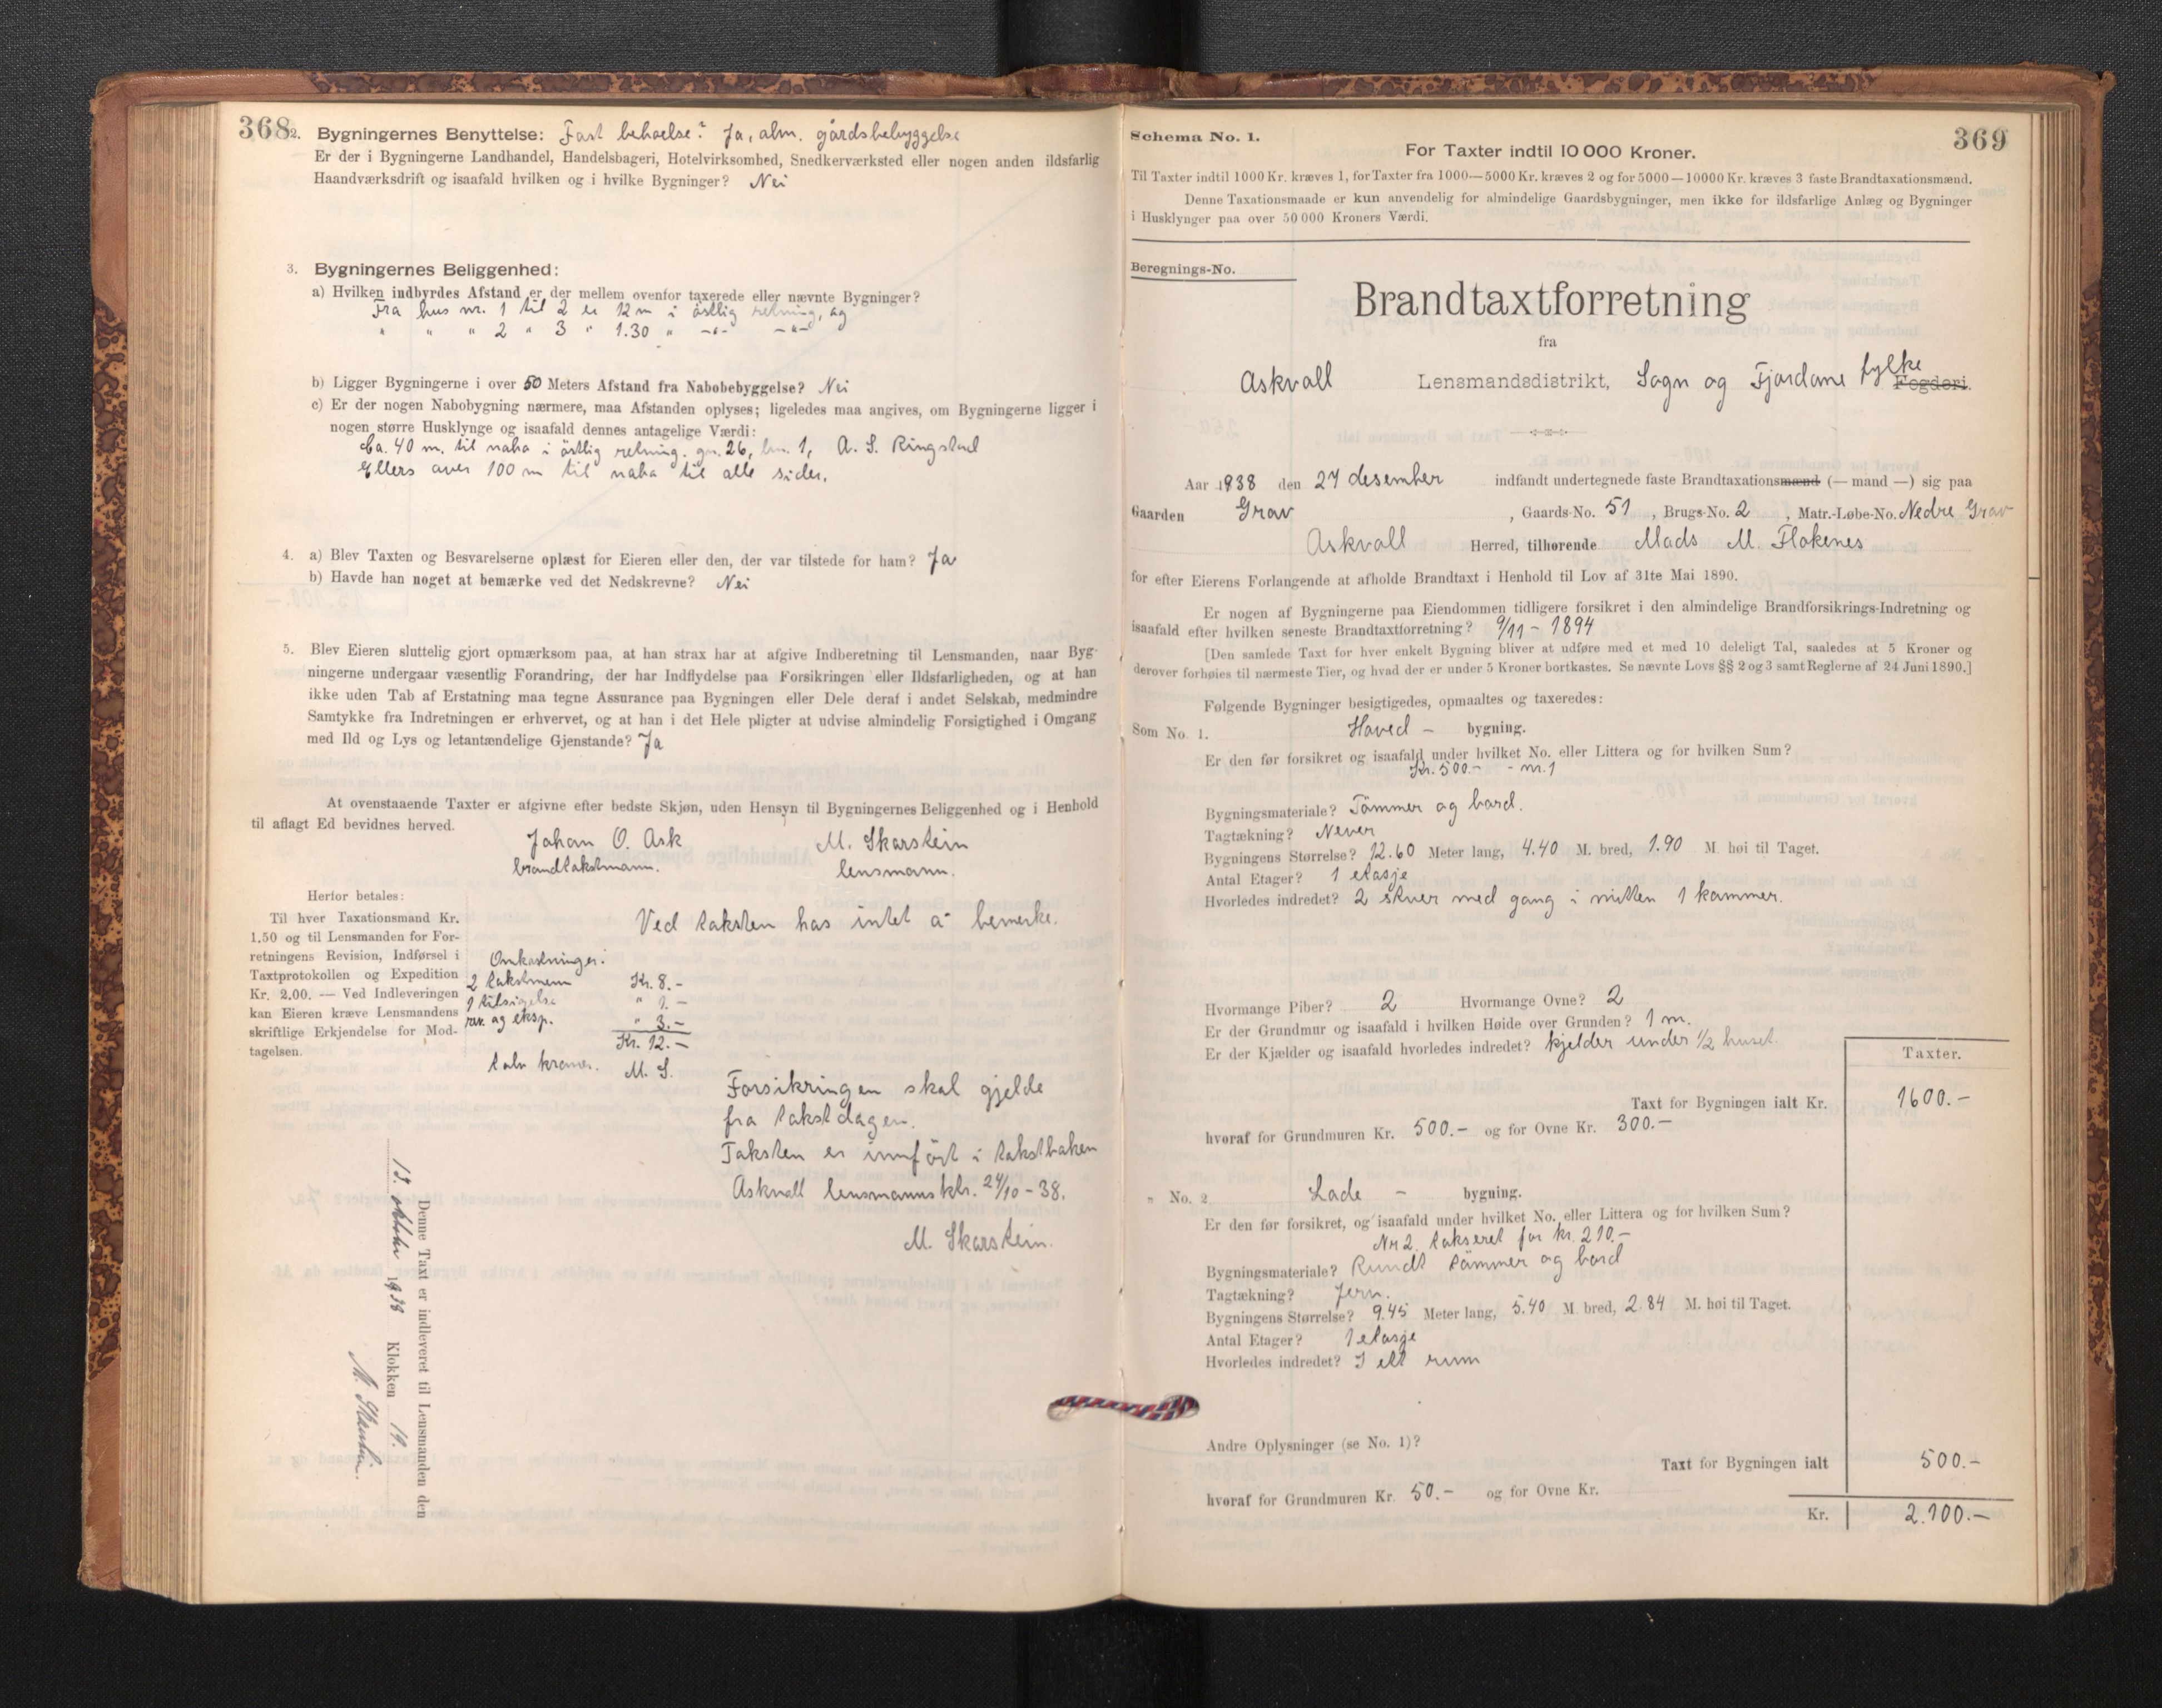 368
2. Bygningernes Benyttelse: Fast beboelse? Ja, alm. gårdsbebyggelse
Er der i Bygningerne Landhandel, Handelsbageri, Hotelvirksomhed, Snedkerværksted eller nogen anden ildsfarlig
Haandværksdrift og isaafald hvilken og i hvilke Bygninger? Nei
3. Bygningernes Beliggenhed:
a) Hvilken indbyrdes Afstand er der mellem ovenfor taxerede eller nævnte Bygninger?
Fra hus nr. 1 til 2 er 12 m i östlig retning, og
" " " 2 " 3 " 1.30 " -"- -"-
b) Ligger Bygningerne i over 50 Meters Afstand fra Nabobebyggelse? Nei
c) Er der nogen Nabobygning nærmere, maa Afstanden oplyses; ligeledes maa angives, om Bygningerne ligger i
nogen større Husklynge og isaafald dennes antagelige Værdi:
Ca. 40 m. til nabo i östlig retning. gn. 26, bn. 1, A. S. Ringstad
Ellers over 100 m til nabo til alle sider.
4. a) Blev Taxten og Besvarelserne oplæst for Eieren eller den, der var tilstede for ham? Ja
b) Havde han noget at bemærke ved det Nedskrevne? Nei
5. Blev Eieren sluttelig gjort opmærksom paa, at han strax har at afgive Indberetning til Lensmanden, naar Byg-
ningerne undergaar væsentlig Forandring, der har Indflydelse paa Forsikringen eller Ildsfarligheden, og at han
ikke uden Tab af Erstatning maa tegne Assurance paa Bygningen eller Dele deraf i andet Selskab, medmindre
Samtykke fra Indretningen er erhvervet, og at han i det Hele pligter at udvise almindelig Forsigtighed i Omgang
med Ild og Lys og letantændelige Gjenstande? Ja
At ovenstaaende Taxter er afgivne efter bedste Skjøn, uden Hensyn til Bygningernes Beliggenhed og i Henhold
til aflagt Ed bevidnes herved.
Johan O. Ask M. Skarstein
brandtakstmann. lensmann.
Herfor betales:
Til hver Taxationsmand Kr.
1.50 og til Lensmanden for For-
retningens Revision, Indførsel i
Taxtprotokollen og Expedition
Kr. 2.00. — Ved Indleveringen
kan Eieren kræve Lensmandens
skriftlige Erkjendelse for Mod-
tagelsen.
Ved taksten has intet å bemerke.
Omkostninger:
2 takstmenn Kr. 8.-
1 tilsigelse " 1.-
rev. og eksp. " 3.-
Kr. 12.-
tolv kroner. M. S.
Forsikringen skal gjelde
fra takstdagen.
Taksten er innfört i takstboken
Askvoll lensmannsktr. 24/10-38.
M. Skarstein.
Denne Taxt er indleveret til Lensmanden den
13. oktober 1938 Klokken 19.
M. Skarstein.
369
Schema No. 1.
For Taxter indtil 10 000 Kroner.
Til Taxter indtil 1000 Kr. kræves 1, for Taxter fra 1000—5000 Kr. kræves 2 og for 5000—10000 Kr. kræves 3 faste Brandtaxationsmænd.
Denne Taxationsmaade er kun anvendelig for almindelige Gaardsbygninger, men ikke for ildsfarlige Anlæg og Bygninger
i Husklynger paa over 50 000 Kroners Værdi.
Beregnings-No.
Brandtaxtforretning
fra
Askvoll Lensmandsdistrikt, Sogn og Fjordane fylke Fogderi.
Aar 1938 den 27 desember indfandt undertegnede faste Brandtaxationsmænd (— mand —) sig paa
Gaarden Grov, Gaards-No. 51, Brugs-No. 2, Matr.-Løbe-No. Nedre Grov
Askvoll Herred, tilhørende Mads M. Flokenes
for efter Eierens Forlangende at afholde Brandtaxt i Henhold til Lov af 31te Mai 1890.
Er nogen af Bygningerne paa Eiendommen tidligere forsikret i den almindelige Brandforsikrings-Indretning og
isaafald efter hvilken seneste Brandtaxtforretning? 9/11 - 1894
[Den samlede Taxt for hver enkelt Bygning bliver at udføre med et med 10 deleligt Tal, saaledes at 5 Kroner og
derover forhøies til nærmeste Tier, og hvad der er under 5 Kroner bortkastes. Se nævnte Lovs §§ 2 og 3 samt Reglerne af 24 Juni 1890.]
Følgende Bygninger besigtigedes, opmaaltes og taxeredes:
Som No. 1. Hoved - bygning.
Er den før forsikret og isaafald under hvilket No. eller Littera og for hvilken Sum?
Kr. 500.- - nr. 1
Bygningsmateriale? Tömmer og bord.
Tagtækning? Never
Bygningens Størrelse? 12.60 Meter lang, 4.40 M. bred, 1.90 M. høi til Taget.
Antal Etager? 1 etasje
Hvorledes indredet? 2 stuer med gang i mitten 1 kammer.
Hvormange Piber? 2 Hvormange Ovne? 2
Er der Grundmur og isaafald i hvilken Høide over Grunden? 1 m.
Er der Kjælder og isaafald hvorledes indredet? kjelder under 1/2 huset.
Taxter.
Taxt for Bygningen ialt Kr. 1600.-
hvoraf for Grundmuren Kr. 500.- og for Ovne Kr. 300.-
" No. 2 Lade - bygning.
Er den før forsikret, og isaafald under hvilket No. eller Littera og for hvilken Sum?
Nr 2. takseret for kr. 210.-
Bygningsmateriale? Rundt tömmer og bord
Tagtækning? Jern.
Bygningens Størrelse? 9.45 Meter lang, 5.40 M. bred, 2.84 M. høi til Taget.
Antal Etager? 1 etasje
Hvorledes indredet? I ett rum
Andre Oplysninger (se No. 1)?
Taxt for Bygningen ialt 500.-
hvoraf for Grundmuren Kr. 50.- og for Ovne Kr.
Kr. 2.100.-